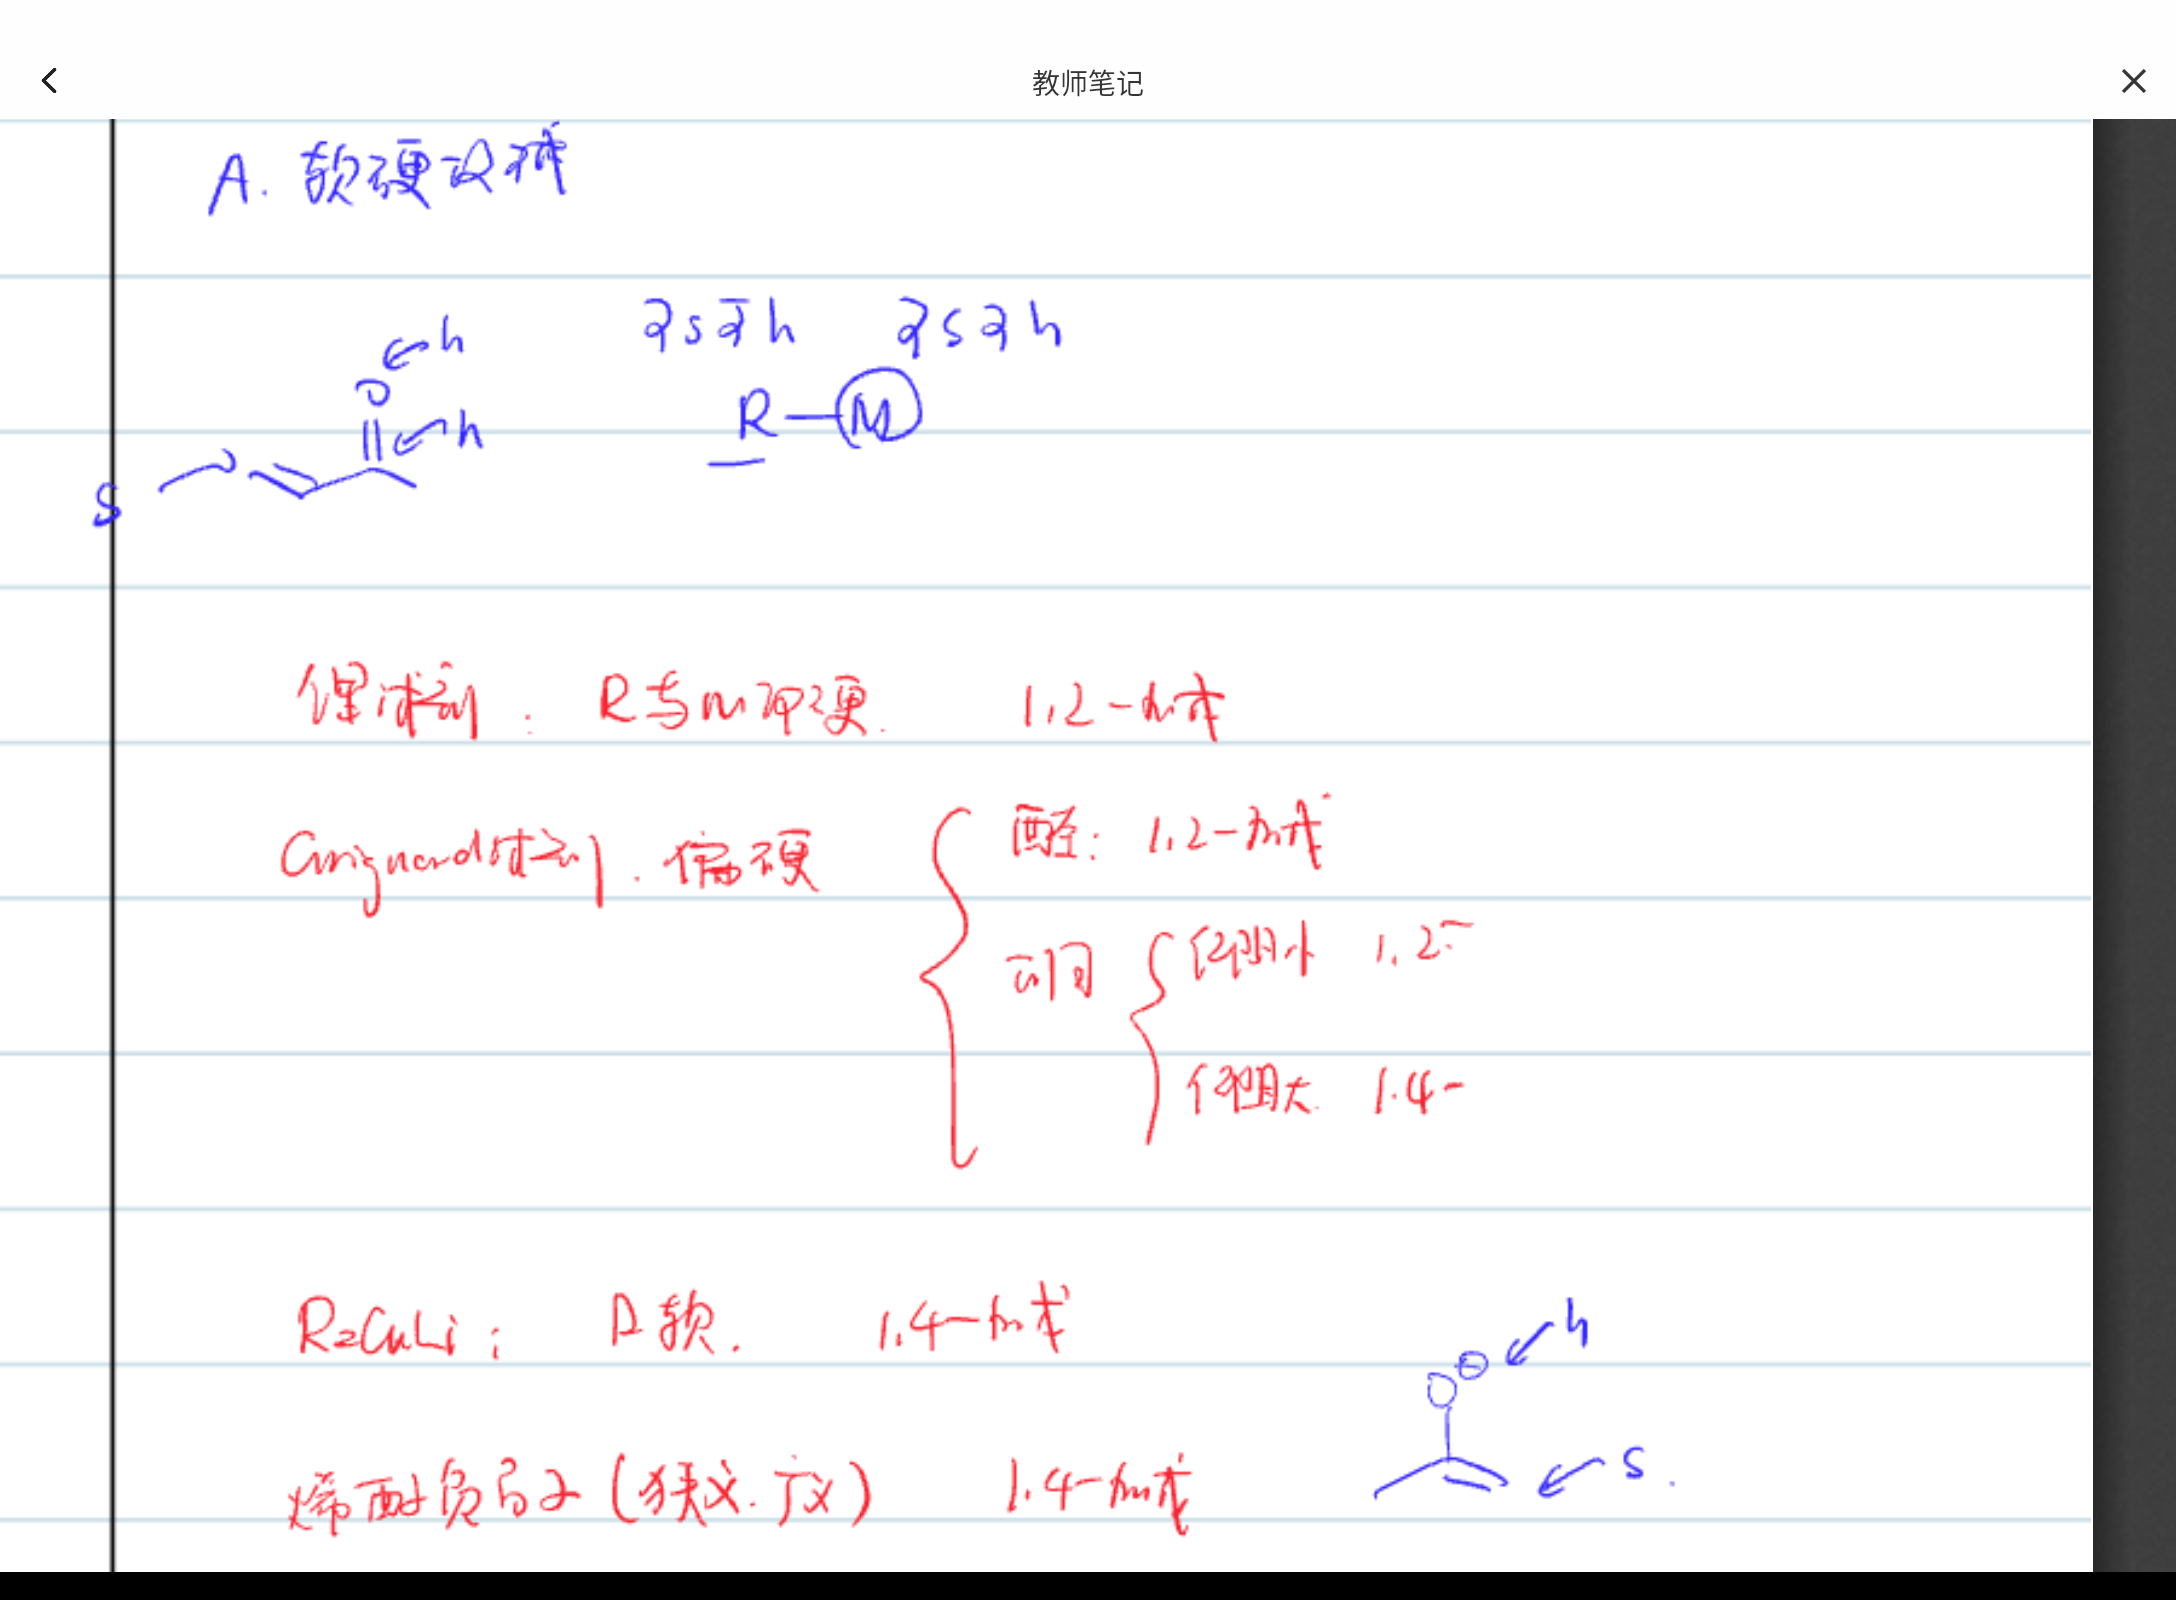 教师笔记
A. 软硬酸碱
h
O
h
S
可s可h 可s可h
R-M
锂试剂: R与m冲硬. 1,2-加成
Grignard试剂. 偏硬
醛: 1,2-加成
酮
位阻小 1,2-
位阻大. 1.4-
R2CuLi: 软. 1.4-加成
h
O⊖
S.
烯醇负离子(狭义.广义) 1.4-加成